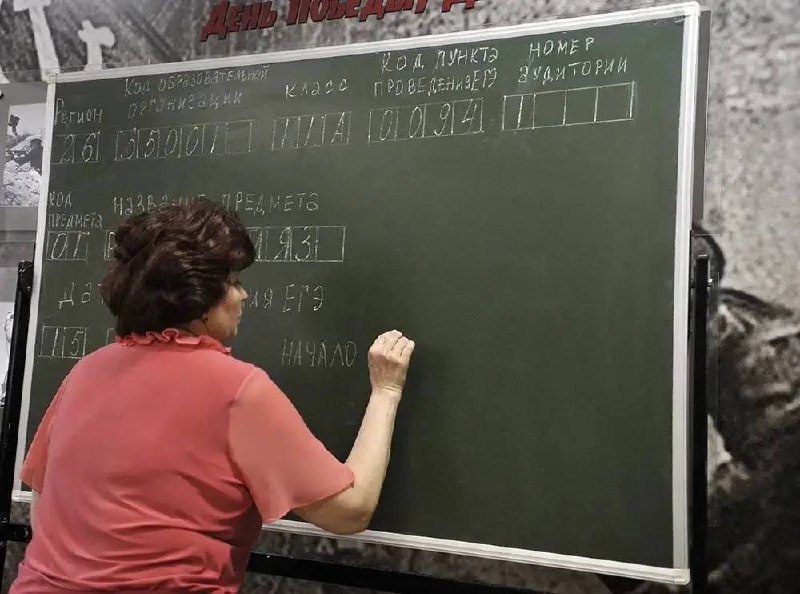 День Победы
Регион
Код образовательной
организации
класс
Код пункта
проведения ЕГЭ
Номер
аудитории
26
35001
11А
0094
1
код
предмета
название предмета
01
ЯЗ
ия ЕГЭ
15
НАЧАЛО